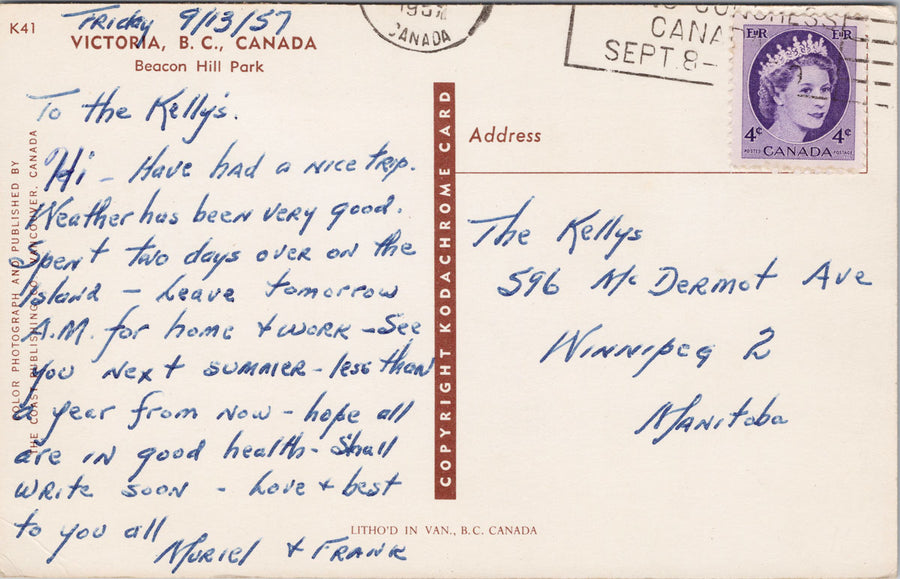 K41
Friday 9/13/57
VICTORIA, B. C., CANADA
Beacon Hill Park
To the Kelly's.
Hi - Have had a nice trip.
Weather has been very good.
Spent two days over on the
Island - Leave tomorrow
A.M. for home + work - See
you next summer - less than
a year from now - hope all
are in good health - Shall
write soon - Love + best
to you all
Muriel + Frank
COLOR PHOTOGRAPH AND PUBLISHED BY
THE COAST PUBLISHING CO. VANCOUVER, CANADA
COPYRIGHT KODACHROME CARD
LITHO'D IN VAN., B.C. CANADA
1957
CANADA
CONGRESS
CANA
SEPT. 8-
EIIR EIIR
4¢ 4¢
POSTES CANADA POSTAGE
Address
The Kellys
596 McDermot Ave
Winnipeg 2
Manitoba